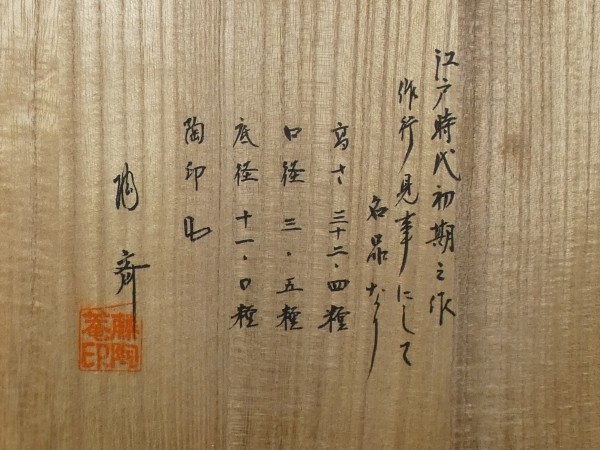 江戸時代初期之作
作行見事にして
名品なり
高さ 三十二.四糎
口径 三.五糎
底径 十一.〇糎
陶印
陶斎
藤陶
印